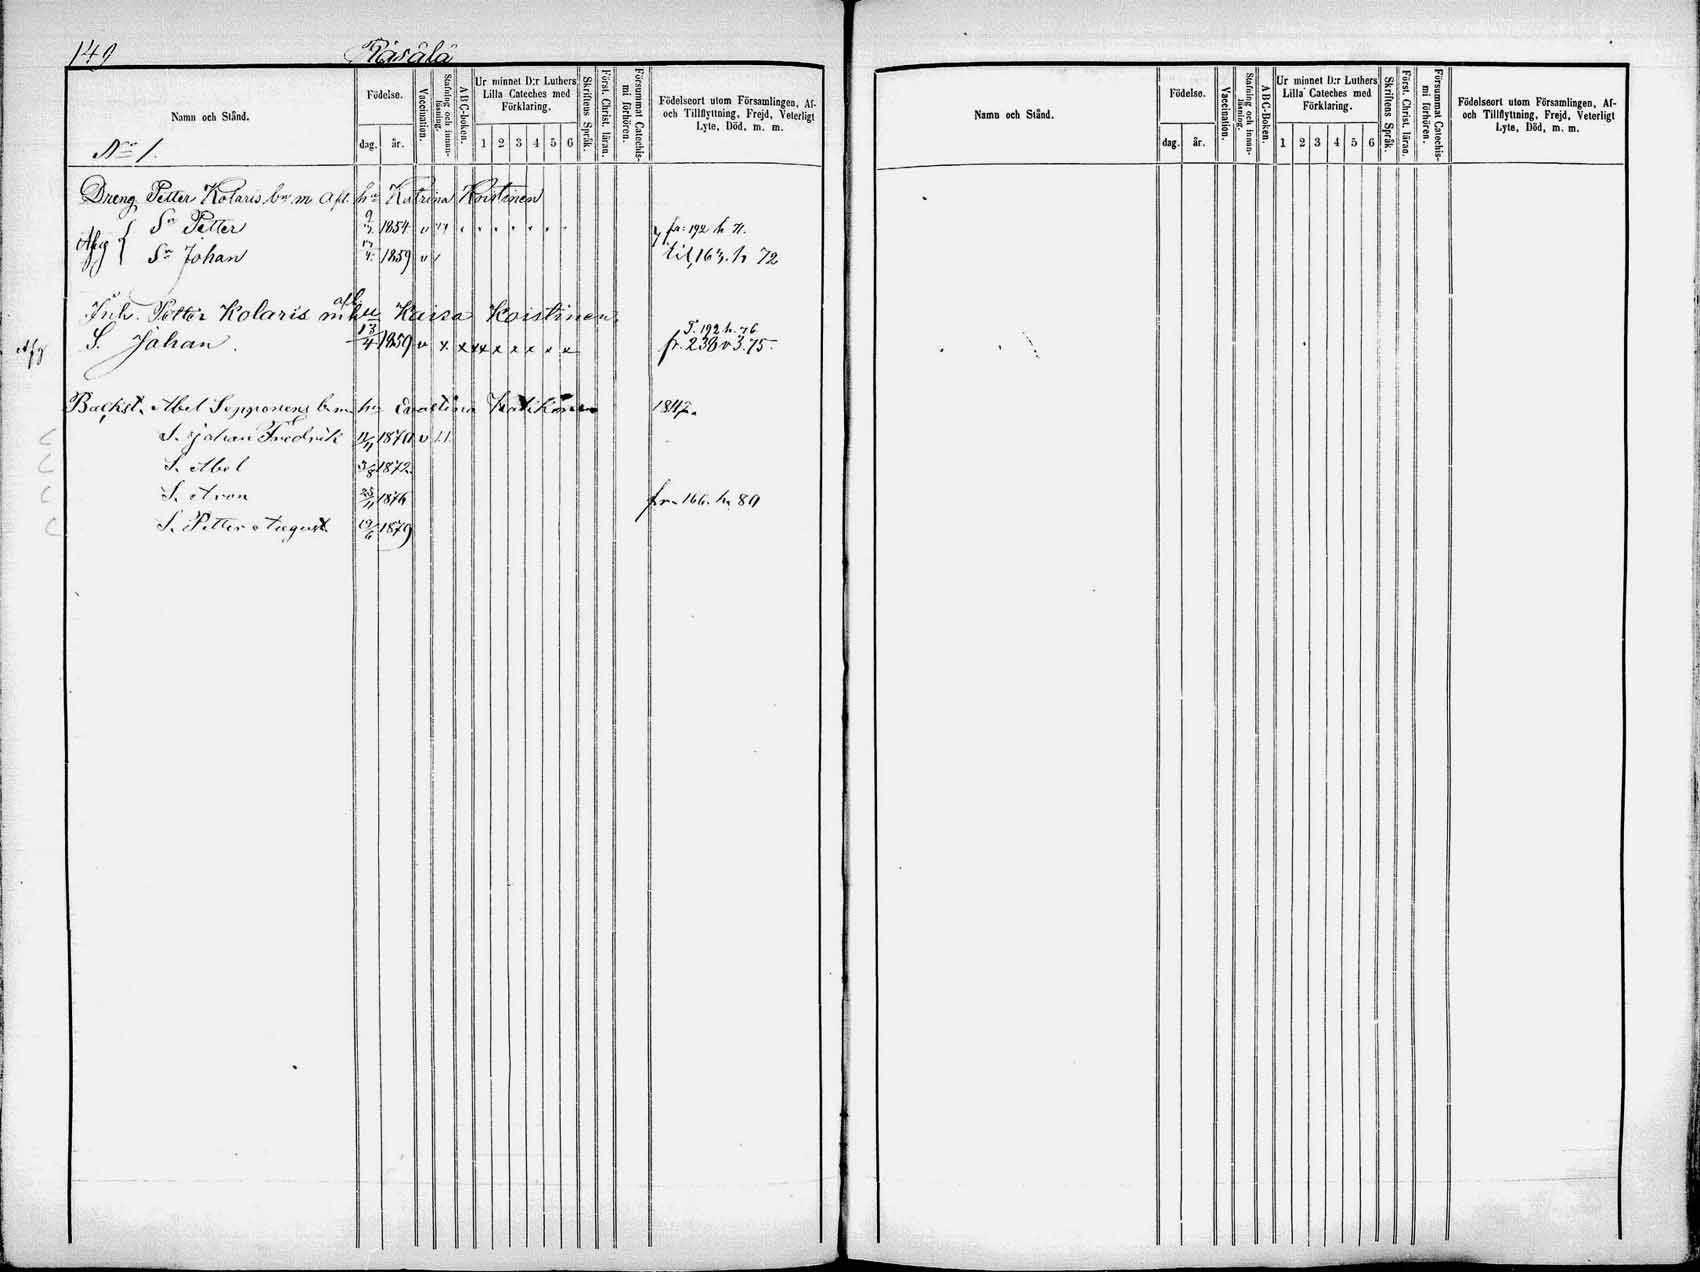 149 Räsälä
Namn och Stånd.
Födelse.
dag. år.
Vaccination.
Stafning och innan-läsning.
ABC-boken.
Ur minnet D:r Luthers Lilla Cateches med Förklaring.
1 2 3 4 5 6
Skriftens Språk.
Först. Christ. läran.
Försummat Catechis-mi förhören.
Födelseort utom Församlingen, Af-
och Tillflyttning, Frejd, Veterligt
Lyte, Död, m. m.
No 1.
Dreng Petter Kolaris b. m afl. h. Katrina Koistinen
Afg Sn Petter 9/3 1854 v fr. 192 h 71.
Sn Johan 1859 v til 163. h 72
Inh. Petter Kolaris m afl hu Kaisa Koistinen
Afg S. Johan. 13/4 1859 v x x xx x x x x x T. 192 h. 76
fr. 238 v 3.75.
Backst. Abel Sepponens b. m. hu 1847.
S. Johan Fredrik 11/11 1870 v
S. Abel 3/8 1872.
S. Aron 25/11 1876 fr. 166. h. 80
S. Petter August 19/6 1879
Namn och Stånd.
Födelse.
dag. år.
Vaccination.
Stafning och innan-läsning.
ABC-Boken.
Ur minnet D:r Luthers Lilla Cateches med Förklaring.
1 2 3 4 5 6
Skriftens Språk.
Först. Christ. läran.
Försummat Catechis-mi förhören.
Födelseort utom Församlingen, Af-
och Tillflyttning, Frejd, Veterligt
Lyte, Död, m. m.